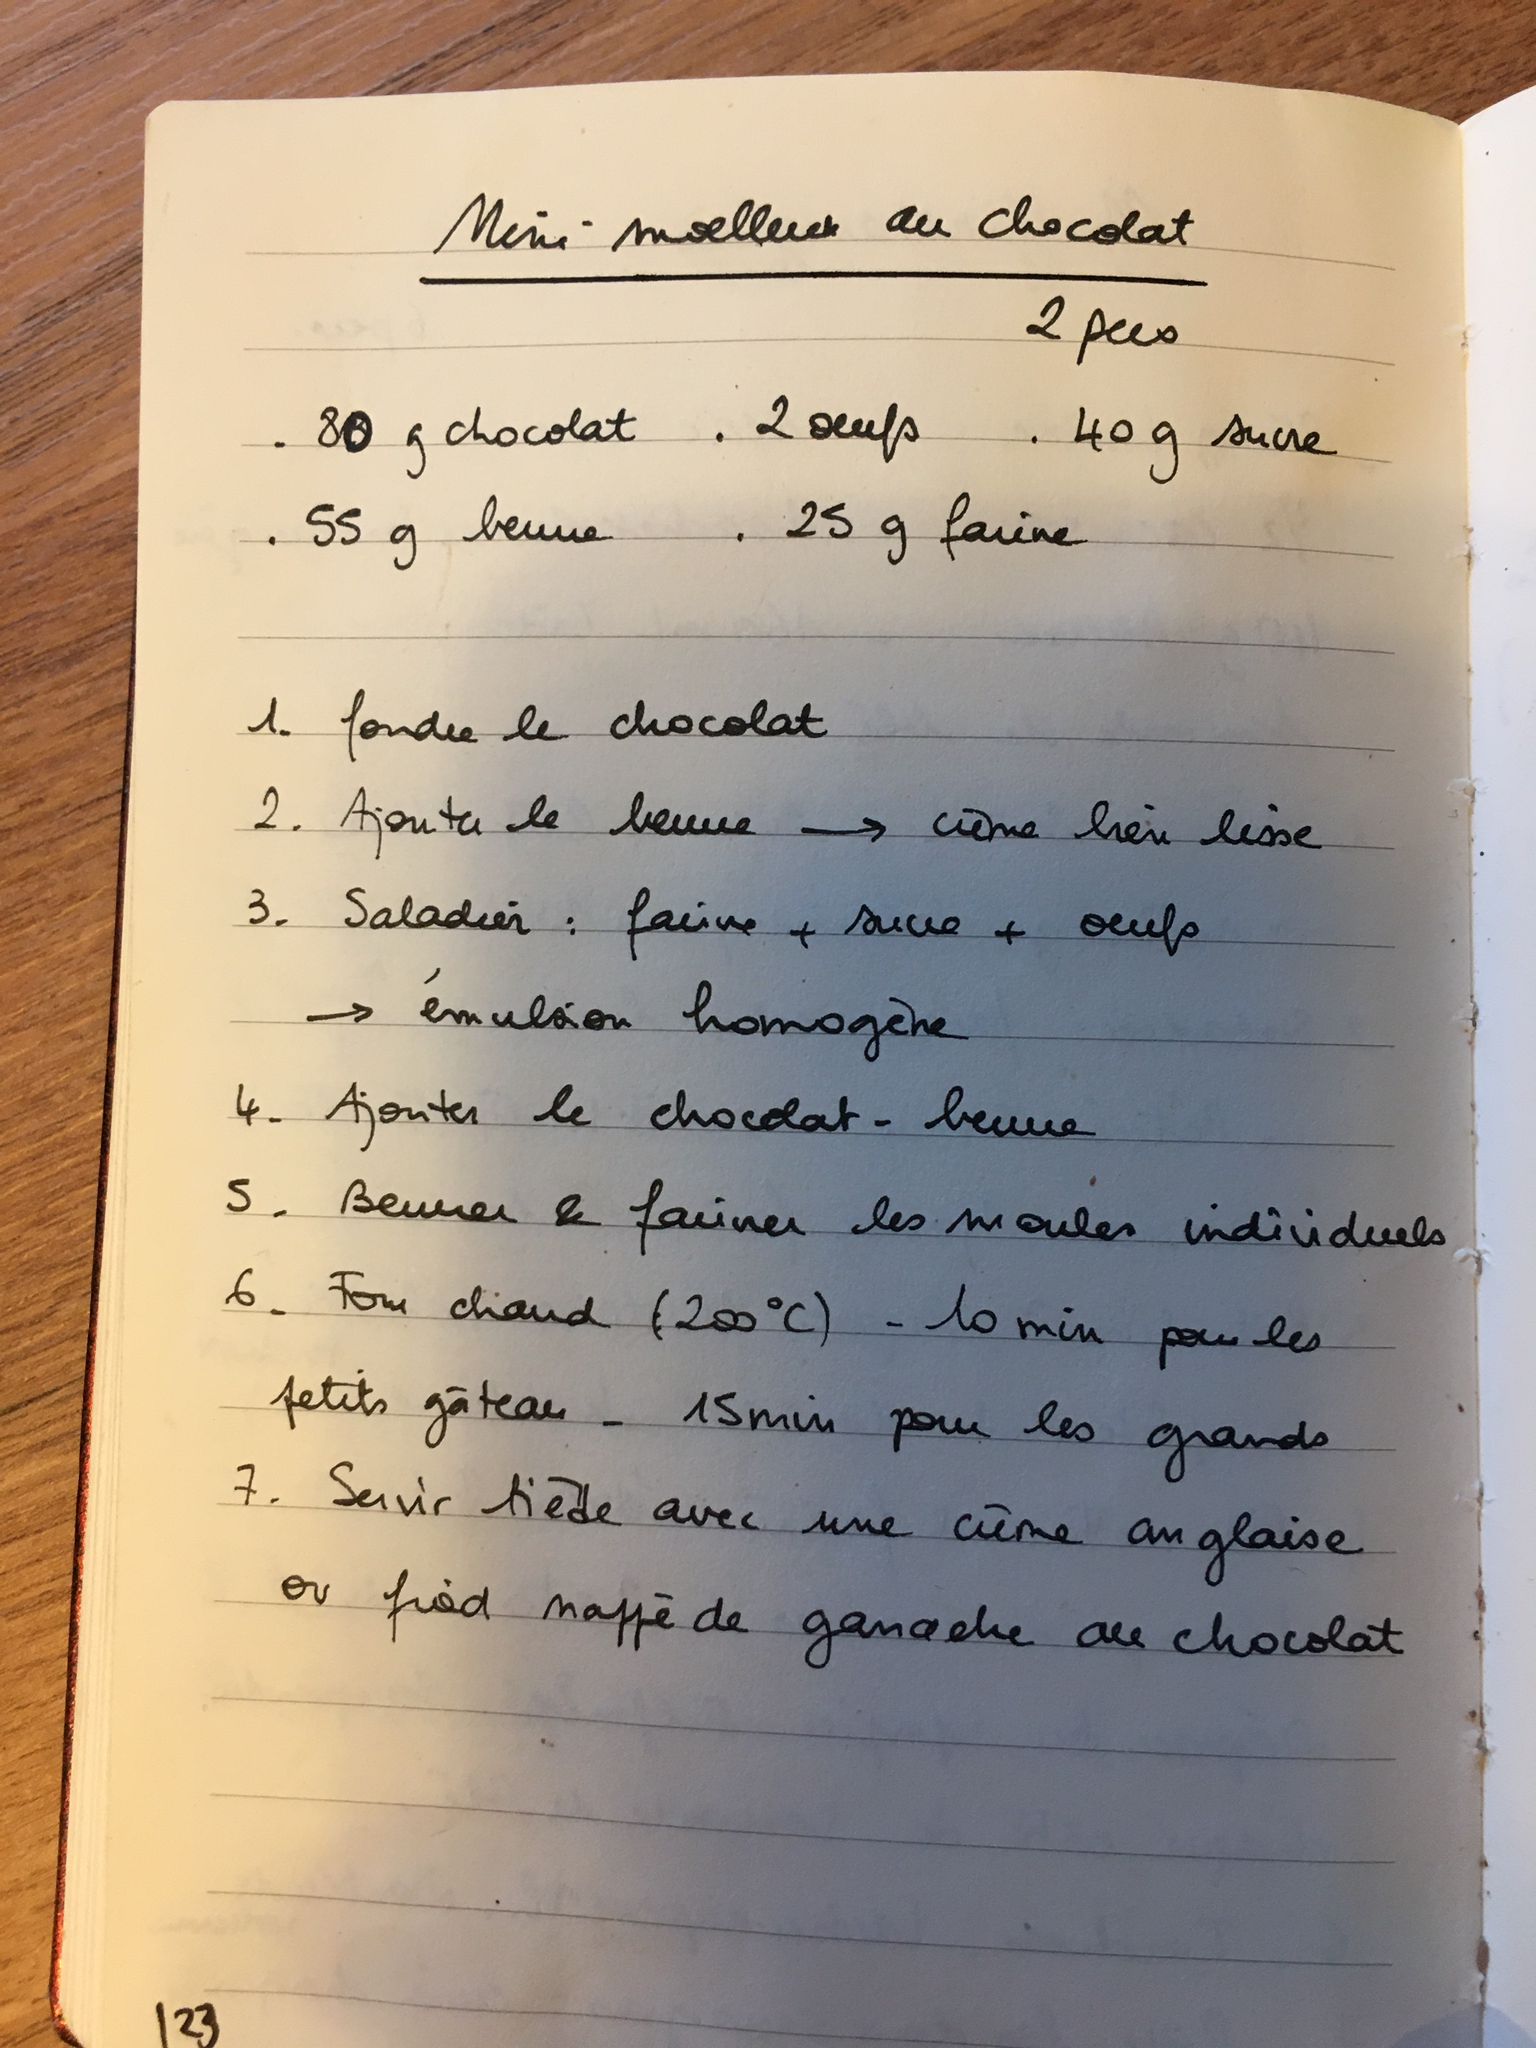 Mini moelleux au chocolat
2 pers
. 80 g chocolat . 2 oeufs . 40 g sucre
. 55 g beurre . 25 g farine
1. fondre le chocolat
2. Ajouter le beurre → crème bien lisse
3. Saladier : farine + sucre + oeufs
→ émulsion homogène
4. Ajouter le chocolat - beurre
5. Beurrer & fariner les moules individuels
6. Four chaud (200°C) - 10 min pour les
petits gâteau - 15 min pour les grands
7. Servir tiède avec une crème anglaise
ou froid nappé de ganache au chocolat
123